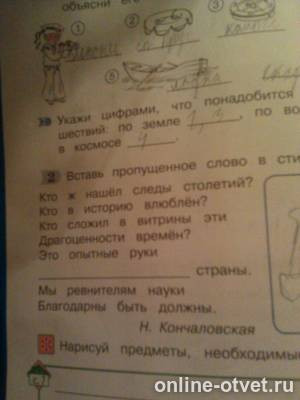 объясни его
1
2
3
5
Укажи цифрами, что понадобится
шествий: по земле 1, 3, по во
в космосе 4.
2 Вставь пропущенное слово в сти
Кто ж нашёл следы столетий?
Кто в историю влюблён?
Кто сложил в витрины эти
Драгоценности времён?
Это опытные руки
страны.
Мы ревнителям науки
Благодарны быть должны.
Н. Кончаловская
Нарисуй предметы, необходимы
online-otvet.ru